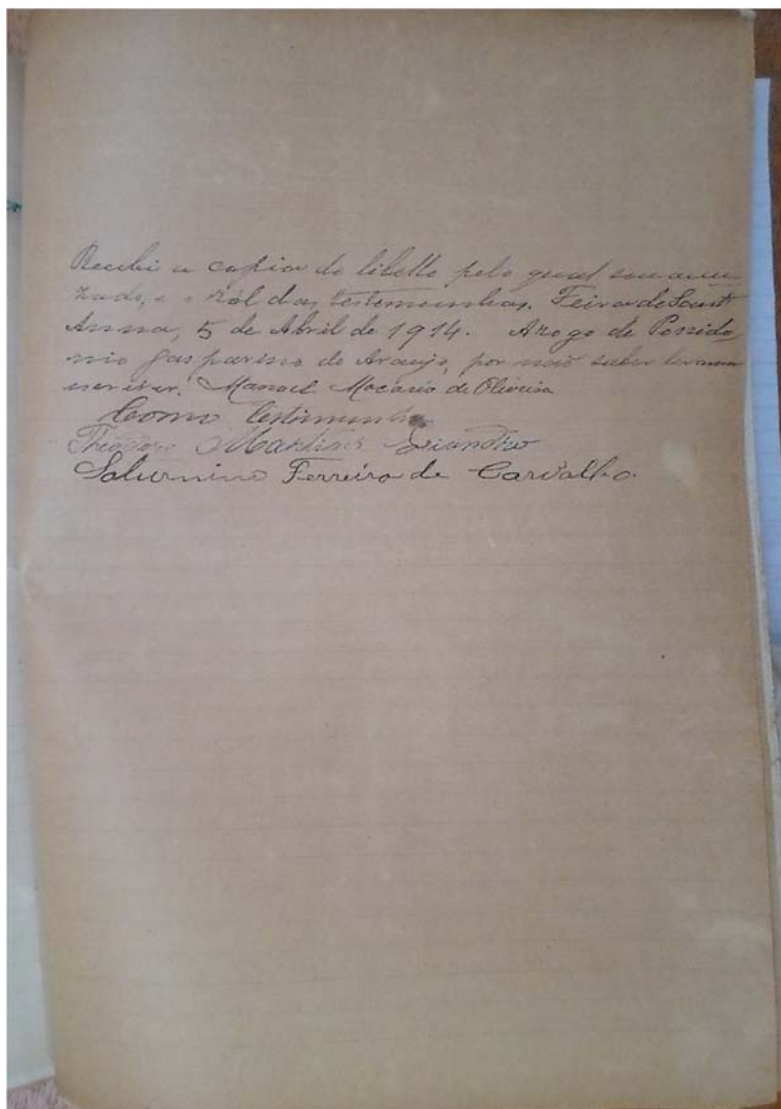 Recebi a copia do libello pelo qual sou accu-
zado, e o ról das testemunhas. Feira de Sant'
Anna, 5 de Abril de 1914. A rogo de Possido-
nio Gasparino de Araujo, por não saber ler nem
escrever. Manoel Macario de Oliveira
Como testimunha
Theodoro Martins
Saturnino Ferreira de Carvalho.